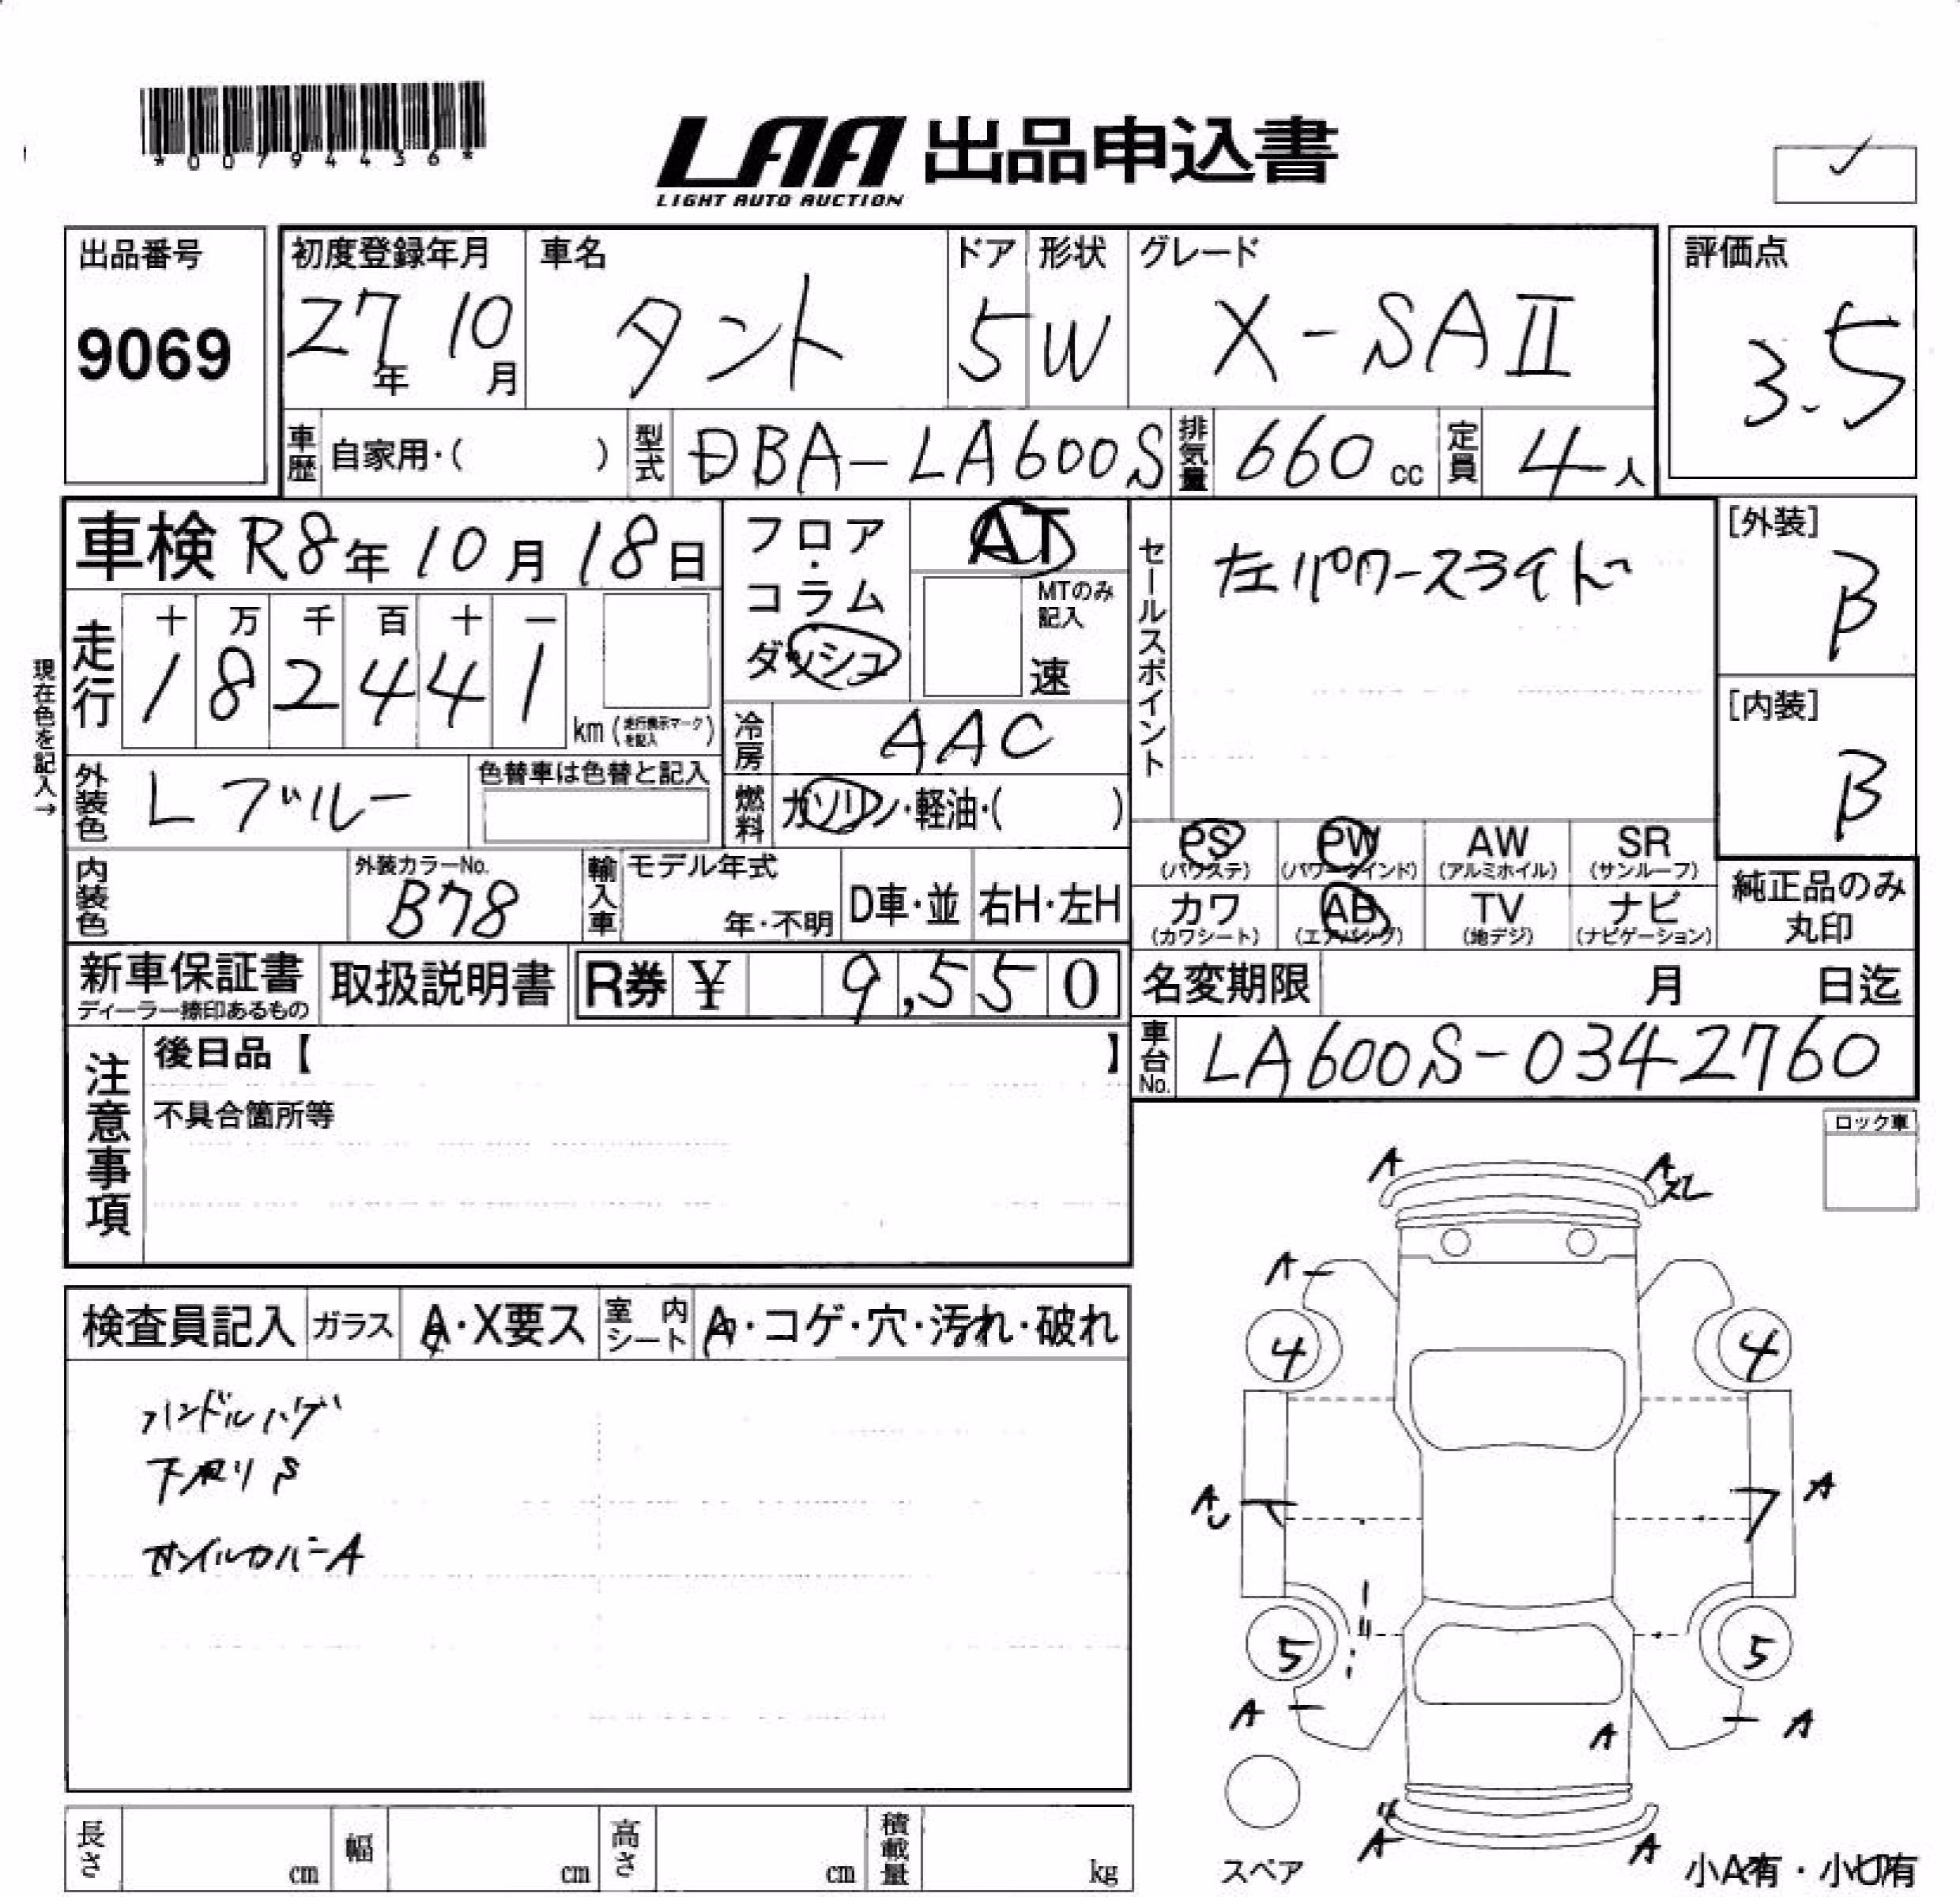 *00794436*
LAA 出品申込書
LIGHT AUTO AUCTION
出品番号
9069
初度登録年月
27年 10月
車名
タント
ドア
5
形状
W
グレード
X-SAⅡ
評価点
3.5
車歴 自家用・( )
型式 DBA-LA600S
排気量 660 cc
定員 4人
車検 R8年 10月 18日
フロア・コラム
ダッシュ
AT
MTのみ記入
速
セールスポイント
左パワースライドー
[外装]
B
[内装]
B
現在色を記入→
走行
十 万 千 百 十 一
1 8 2 4 4 1
km (走行表示マークを記入)
冷房 AAC
外装色 Lブルー
色替車は色替と記入
燃料 ガソリン・軽油・( )
PS (パワステ)
PW (パワーウインド)
AW (アルミホイル)
SR (サンルーフ)
カワ (カワシート)
AB (エアバッグ)
TV (地デジ)
ナビ (ナビゲーション)
純正品のみ丸印
内装色
外装カラーNo.
B78
輸入車
モデル年式
年・不明
D車・並
右H・左H
新車保証書
ディーラー捺印あるもの
取扱説明書
R券 ¥ 9,550
名変期限 月 日迄
車台No. LA600S-0342760
注意事項
後日品【 】
不具合箇所等
ロック車
検査員記入
ガラス A・X要ス
室内シート A・コゲ・穴・汚れ・破れ
ハンドルハゲ
下廻りS
ホイルカバーA
A
A
スレ
A
4
4
A
A
5
5
A
A
A
A
A
スペア
小A有・小U有
長さ cm
幅 cm
高さ cm
積載量 kg